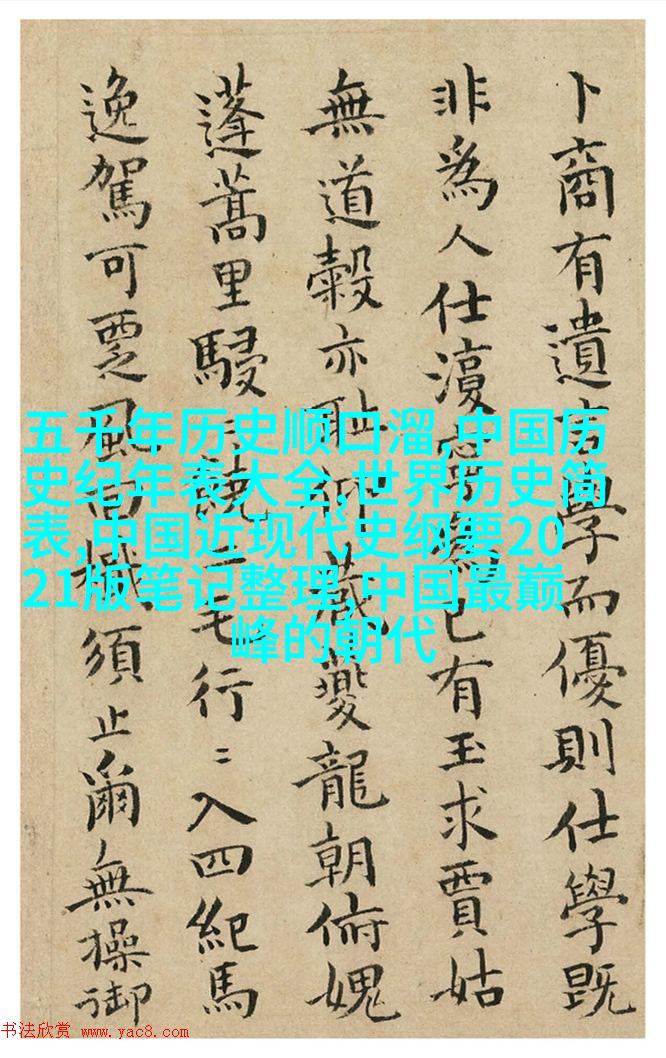 卜商有遺言學而優則仕學既
非為人仕寧為己有玉求賈姑
無道穀亦恥仰藏夔龍朝俯媿
蓬蒿里駸〻繞二毛行〻入四紀馬
逸駕可覂風機須止爾無操御
五千年历史顺口溜,中国历
史纪年表大全,世界历史简
表,中国近现代史纲要20
21版笔记整理,中国最巅
峰的朝代
书法欣赏 www.yac8.com